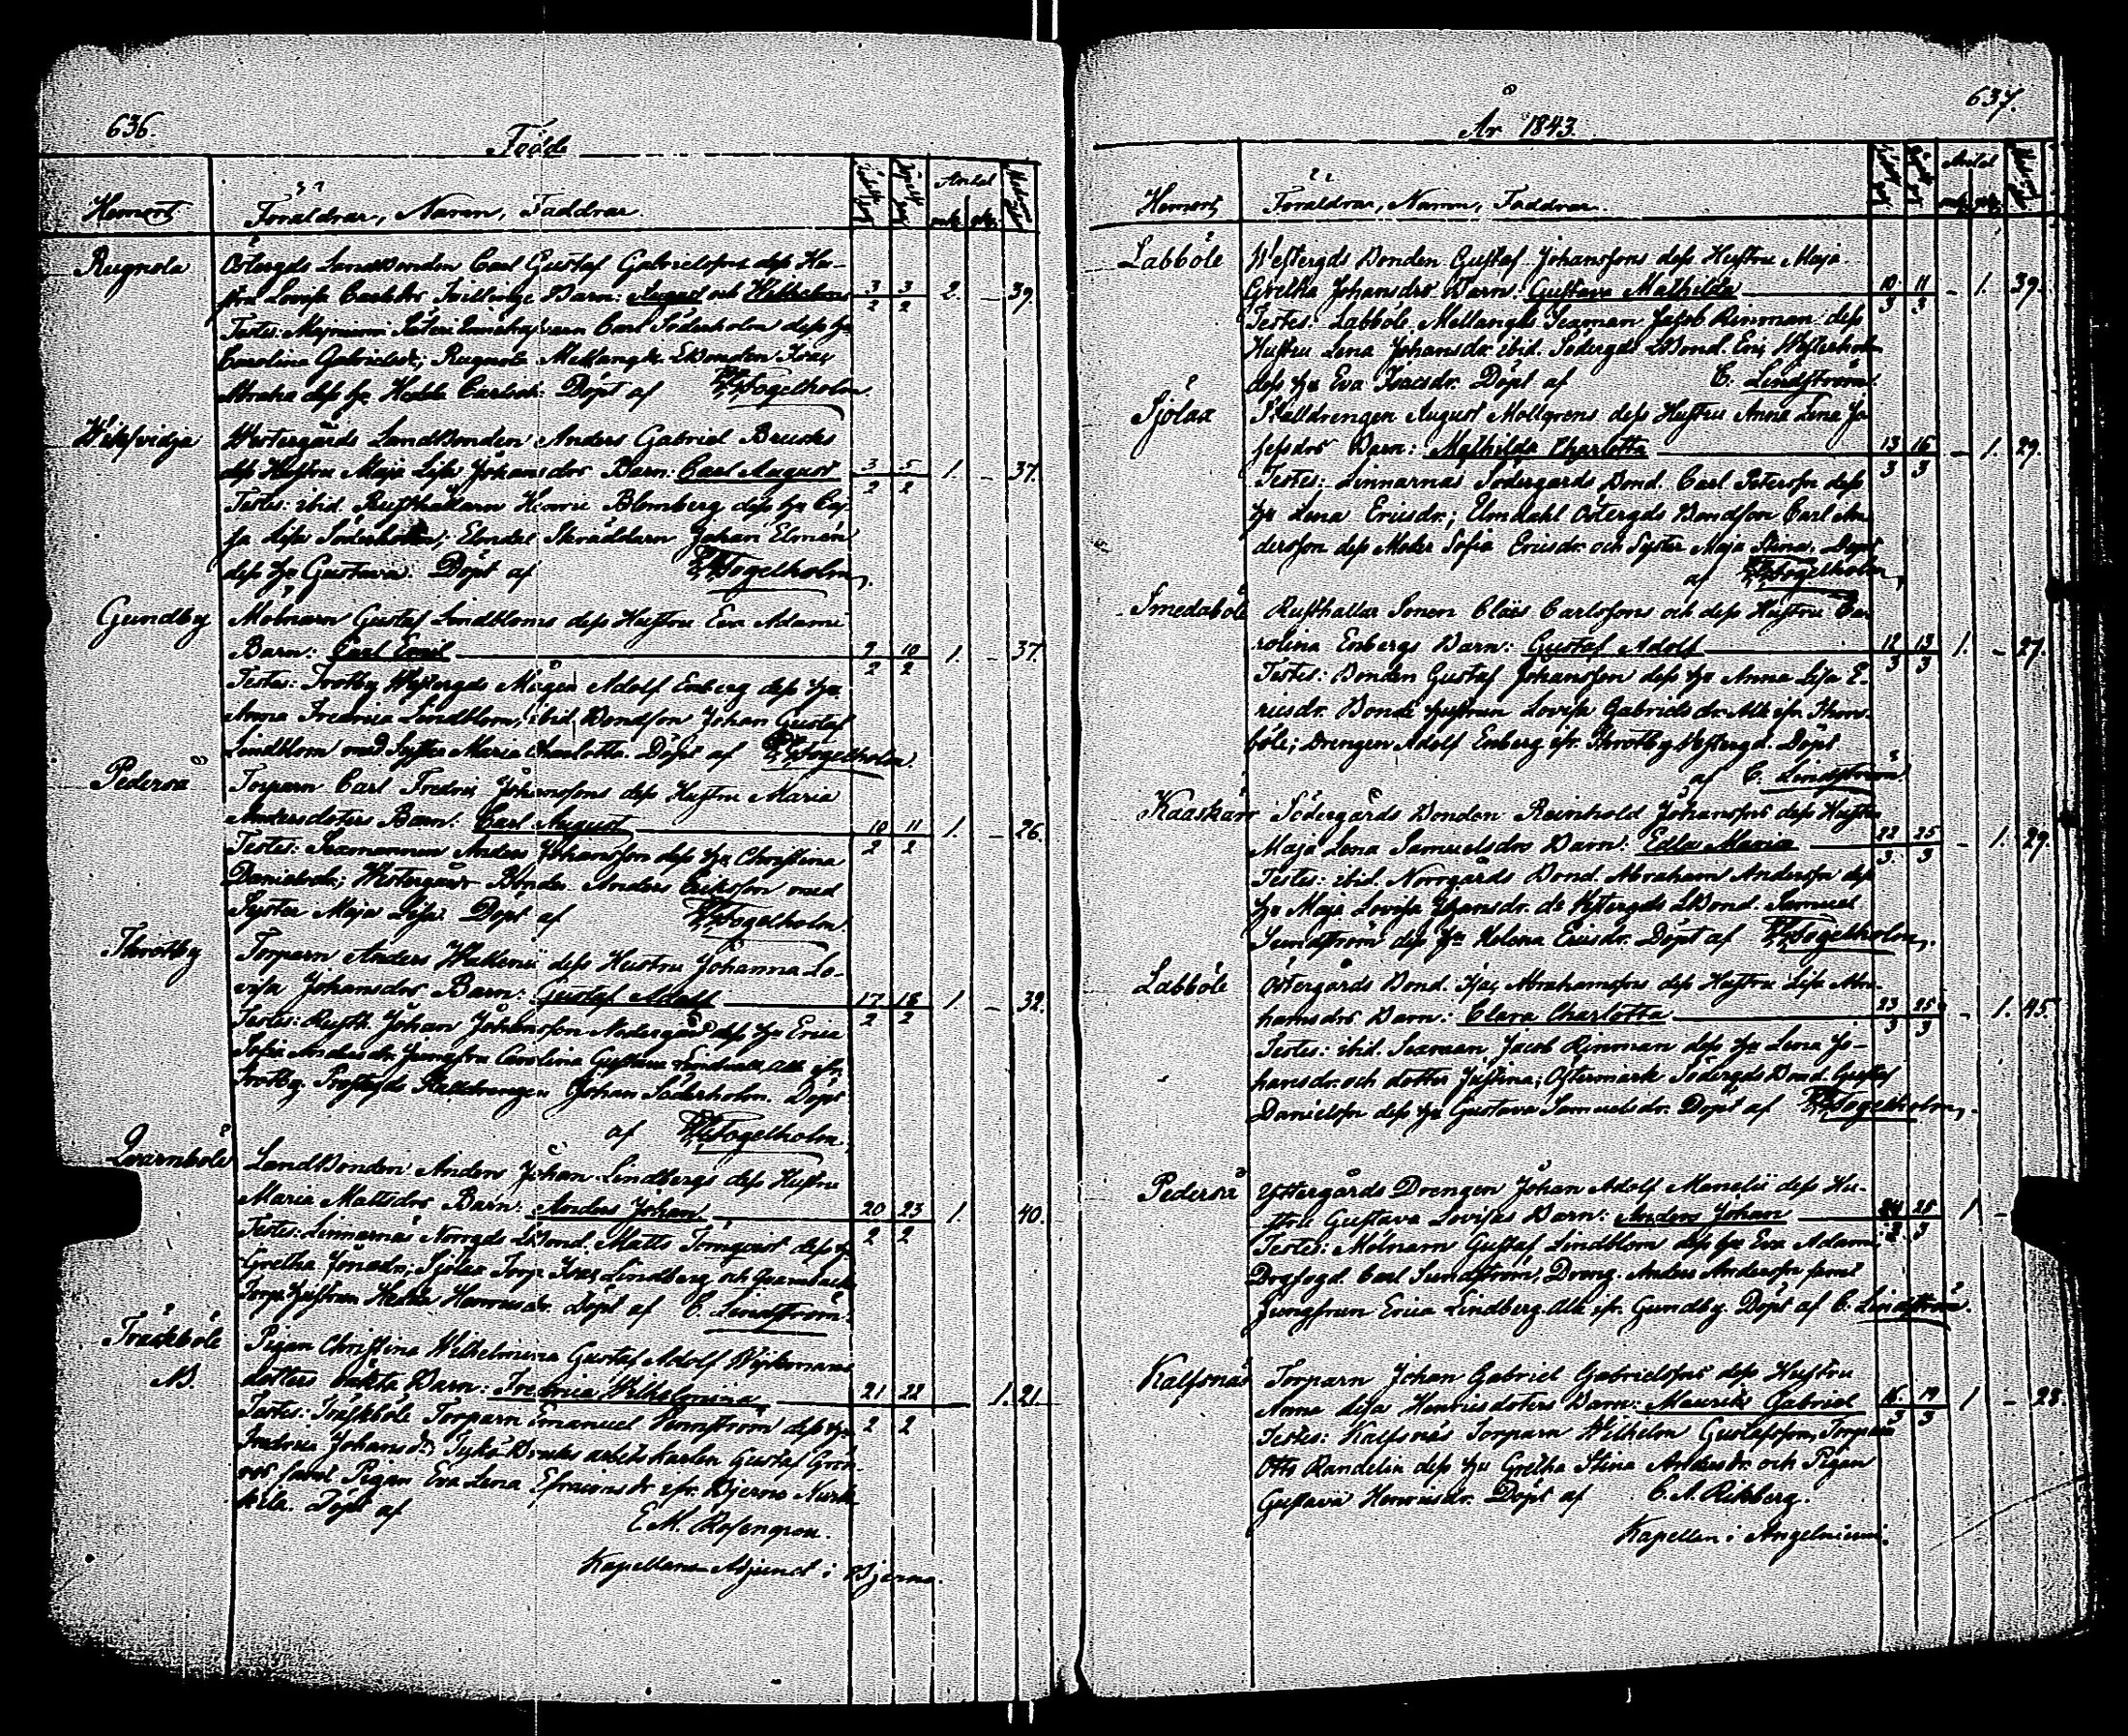 636.
Födde
Hemort Föräldrar, Namn, Faddrar. Födelse dag Döpelse dag Antal mk. qk. Modrens ålder
Rugnola Östergds Landbonden Carl Gustaf Gabrielsons dess Hu-
stru Lovisa Carlsdrs Tvillinge Barn: August och Wilhelm 3/2 3/2 2. – 39.
Testes: Carl Söderholm dess hu
Carolina Gabrielsdr; Rugnola Mellangds LBonden Isac
dess hu Hedda Carlsdr: Döpt af Fogelholm.
Westergårds Landbonden Anders Gabriel
dess Hustru Maja Lisa Johansdrs Barn: Carl August 3/2 5/2 1. – 37.
Testes: ibid. Rusthållarn Henric Blomberg dess hu Caj-
sa Lisa Söderholm; Elmdal Skräddarn Johan Elmén
dess hu Gustava. Döpt af Fogelholm.
Gundby Mölnarn Gustaf Lindbloms dess Hustru Eva Adami
Barn: Carl Emil 9/2 10/2 1. – 37.
Testes: Trotby Westergds Mågen Adolf Enberg dess hu
Anna Fredrica Lindblom, ibid. Bondson Johan Gustaf
Lindblom med Syster Maria Charlotta. Döpt af Fogelholm.
Pederså Torparn Carl Fredric Johanssons dess Hustru Maria
Andersdoters Barn: Carl August 10/2 11/2 1. – 26.
Testes: Seamannen Anders Johansson dess hu Christina
Danielsdr; Westergårds Bonden Anders Eriksson med
Syster Maja Lisa. Döpt af Fogelholm.
Throtby Torparn Anders dess Hustru Johanna Lo-
visa Johansdrs Barn: Gustaf Adolf 17/2 18/2 1. – 32.
Testes: Rusth. Johan Johansson Nedergård dess hu Erica
Sofia Andersdr. Jungfru Carolina Gustava alla ifr.
Trotby, Stalldrengen Johan Söderholm. Döpt
af Fogelholm.
Qvarnböle Landbonden Anders Johan Lindbergs dess Hustru
Maria Mattsdrs Barn: Anders Johan 20/2 23/2 1. 40.
Testes: Linnarnäs Norrgds LBond. Matts Törnqvist dess hu
Gretha Jönsdr; Sjölax Torp. Isac Lindberg och
Torp. Hustrun Hedda Henricsdr. Döpt af C. Lindström.
Träskböle Pigan Christina Wilhelmina Gustaf Adolf
NB. dotters oäkta Barn: Fredrica Wilhelmina 21/2 22/2 1. 21.
Testes: Träskböle Torparn Emanuel dess hu
Fredrica Johansdr, Tykö Bruks arbets karlen Gustaf Grön-
roos samt Pigan Eva Lena Efraimsdr ifr. Bjerno
Döpt af
E. M. Rosengren.
Kapellans Adjunct i Bjerno.
637.
År 1843.
Hemort Föräldrar, Namn, Faddrar. Antal mk. qk.
Labböle Westergds Bonden Gustaf Johanssons dess Hustru Maja
Gretha Johansdrs Barn: Gustava Mathilda 10/3 11/3 – 1. 39.
Testes: Labböle Mellangds Seaman Jacob Renman dess
Hustru Lena Johansdr. ibid. Södergds LBond. Eric
dess hu Eva Isacsdr. Döpt af C. Lindström.
Sjölax Stalldrengen August Mollgrens dess Hustru Anna Lena Jo-
sefsdrs Barn: Mathilda Charlotta 13/3 16/3 – 1. 29.
Testes: Linnarnäs Södergårds Bond. Carl Petersson dess
hu Lena Ericsdr.; Elmdahl Östergds Bondson Carl An-
dersson dess Moder Sofia Ericsdr. och Syster Maja Stina. Döpt
af Fogelholm.
Smedaböle Rusthållar Sonen Claës Carlssons och dess Hustru Ca-
rolina Enbergs Barn: Gustaf Adolf 12/3 13/3 1. – 27.
Testes: Bonden Gustaf Johansson dess hu Anna Lisa E-
ricsdr. Bonde hustrun Lovisa Gabrielsdr. Alla ifr. Skom-
böle; Drengen Adolf Enberg ifr. Throtby Westergd. Döpt
af C. Lindström
Kaaskärr Södergårds Bonden Reinhold Johanssons dess Hustru
Maja Lena Samuelsdrs Barn: Edla Maria 22/3 25/3 – 1. 29.
Testes: ibid. Norrgårds Bond. Abraham Andersson dess
hu Maja Lovisa Johansdr. Westergds LBond. Samuel
Sundström dess hu Helena Ericsdr. Döpt af Fogelholm.
Labböle Östergårds Bond. Isac Abrahamssons dess Hustru Lisa Abra-
hamsdrs Barn: Clara Charlotta 23/3 25/3 – 1. 45.
Testes: ibid. Seaman Jacob Renman dess hu Lena Jo-
hansdr. och dotter Justina; Östermark Södergds Bond. Gustaf
Danielsson dess hu Gustava Samuelsdr. Döpt af Fogelholm.
Pederså Yttergårds Drengen Johan Adolf Manelii dess Hu-
stru Gustava Lovisas Barn: Anders Johan 24/3 25/3 1 –
Testes: Mölnarn Gustaf Lindblom dess hu Eva Adami
Drgfogd. Carl Sundström, Dreng. Anders Andersson samt
Jungfrun Erica Lindberg alla ifr. Gundby. Döpt af C. Lindström.
Kalfsnäs Torparn Johan Gabriel Gabrielssons dess Hustru
Anna Lisa Henricsdoters Barn: Maurits Gabriel 16/3 19/3 1 – 28.
Testes: Kalfsnäs Torparn Wilhelm Gustafsson, Torparn
Otto Randelin dess hu Gretha Stina Andersdr. och Pigan
Gustava Henricsdr. Döpt af C. A. Rikberg.
Kapellan i Angelniemi.